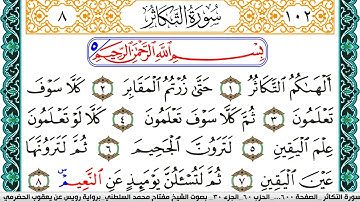 ٨ سُورَةُ التَّكَاثُرِ ١٠٢
بِسْمِ اللَّهِ الرَّحْمَٰنِ الرَّحِيمِ
أَلْهَاكُمُ التَّكَاثُرُ ١ حَتَّىٰ زُرْتُمُ الْمَقَابِرَ ٢ كَلَّا سَوْفَ
تَعْلَمُونَ ٣ ثُمَّ كَلَّا سَوْفَ تَعْلَمُونَ ٤ كَلَّا لَوْ تَعْلَمُونَ
عِلْمَ الْيَقِينِ ٥ لَتَرَوُنَّ الْجَحِيمَ ٦ ثُمَّ لَتَرَوُنَّهَا
عَيْنَ الْيَقِينِ ٧ ثُمَّ لَتُسْأَلُنَّ يَوْمَئِذٍ عَنِ النَّعِيمِ ٨
سورة التكاثر الصفحة ٦٠٠... الحزب ٦٠ الجزء ٣٠ بصوت الشيخ مفتاح محمد السلطني برواية رويس عن يعقوب الحضرمي